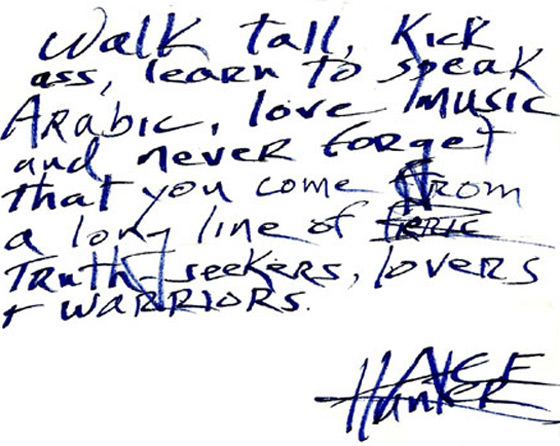 Walk tall, Kick
ass, learn to speak
Arabic, love music
and never forget
that you come from
a long line of
Truth-seekers, lovers
+ warriors.
Hunter